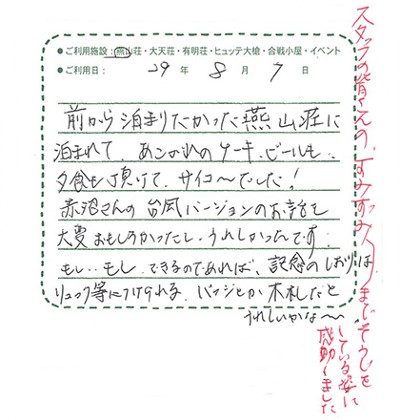 ●ご利用施設：燕山荘・大天荘・有明荘・ヒュッテ大槍・合戦小屋・イベント
●ご利用日： 29 年 8 月 7 日
前から泊まりたかった燕山荘に
泊まれて、あこがれのケーキ、ビールも、
夕食も頂けて、サイコーでした！
赤沼さんの台風バージョンのお話も
大変おもしろかったし、うれしかったです。
もし‥もし、できるのであれば、記念のしおりは
リュック等につけられる、バッジとか木札だと
うれしいかな〜
スタッフの皆さんの、すみずみまでそうじを
している姿に
感動しました